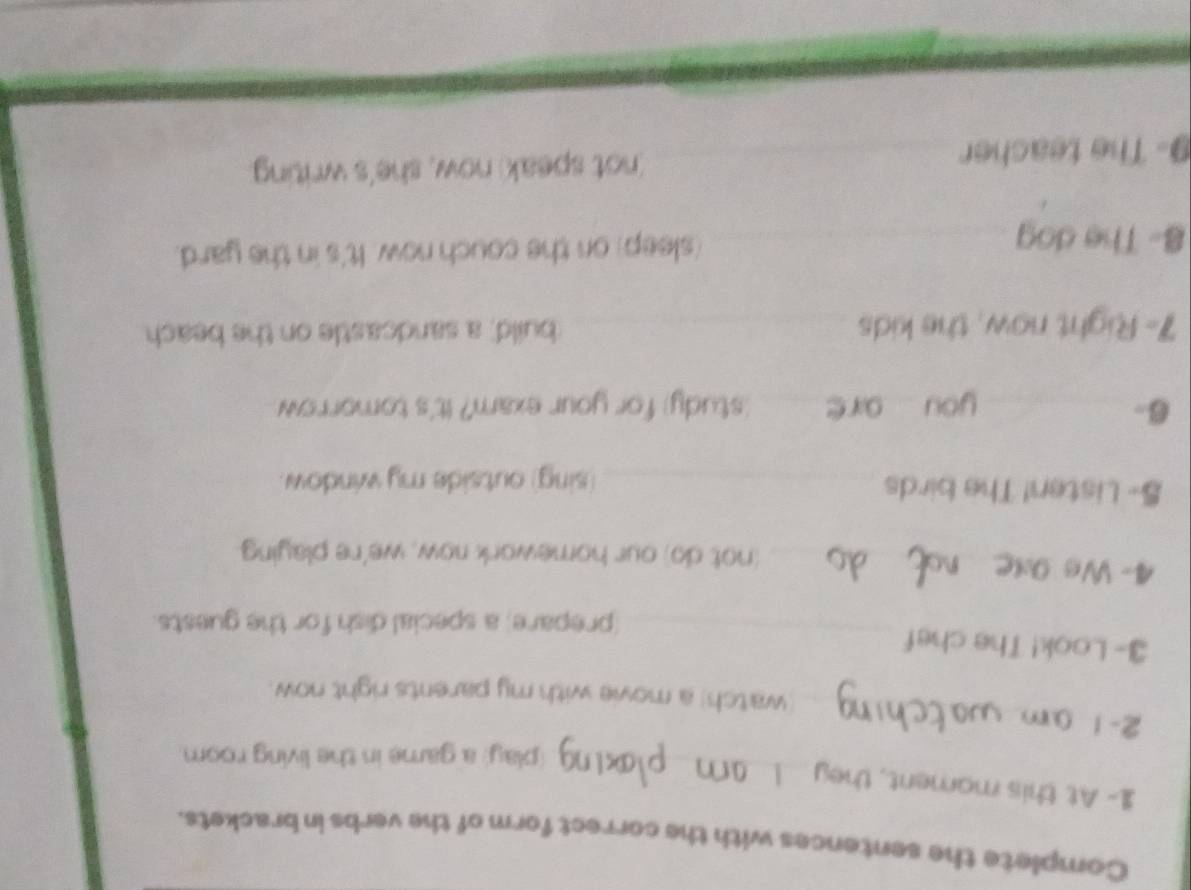 Complete the sentences with the correct form of the verbs in brackets.
1- At this moment, they I am plaxing (play) a game in the living room
2- I am watching (watch) a movie with my parents right now.
3- Look! The chef (prepare) a special dish for the guests
4- We are not do (not do) our homework now, we're playing
5- Listen! The birds (sing) outside my window.
6- you are (study) for your exam? It's tomorrow
7- Right now, the kids (build) a sandcastle on the beach
8- The dog (sleep) on the couch now. It's in the yard.
9- The teacher (not speak) now, she's writing